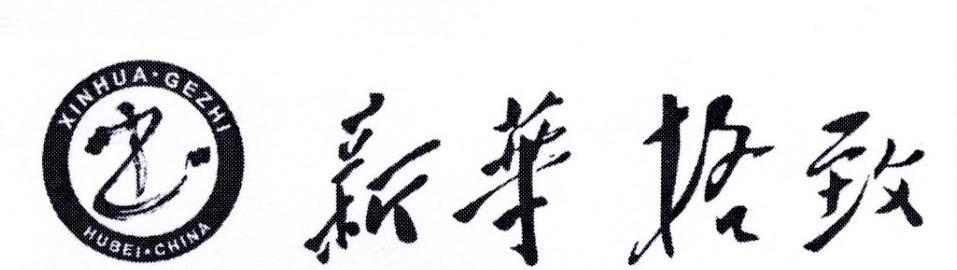 XINHUA·GEZHI
HUBEI·CHINA
新華 格致